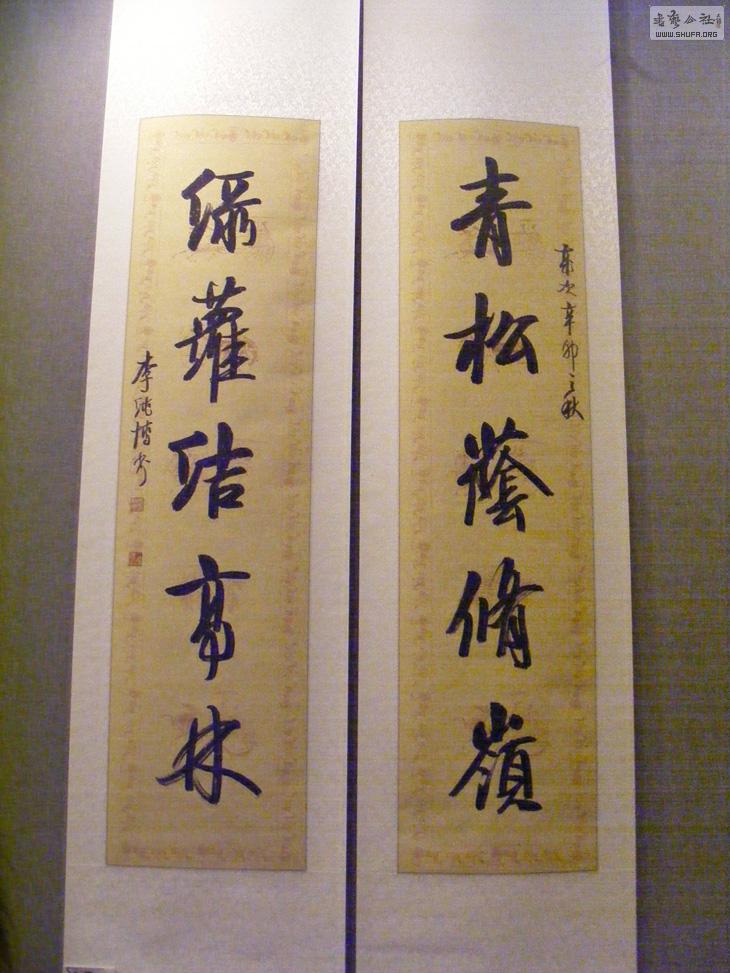 青松蔭脩嶺
歲次辛卯之秋
綠蘿結高林
李純博書
書藝公社
WWW.SHUFA.ORG